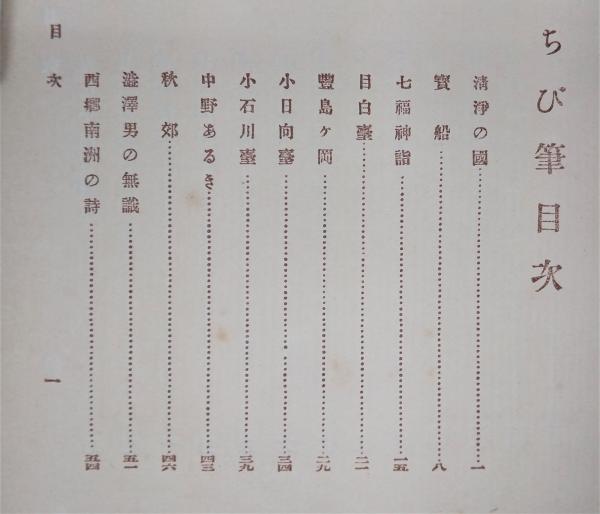 ちび筆目次
淸淨の國…………一
寳船…………八
七福神詣…………一五
目白臺…………二一
豐島ヶ岡…………二九
小日向臺…………三四
小石川臺…………三九
中野あるき…………四三
秋郊…………四六
澁澤男の無識…………五一
西鄕南洲の詩…………五四
目次
一